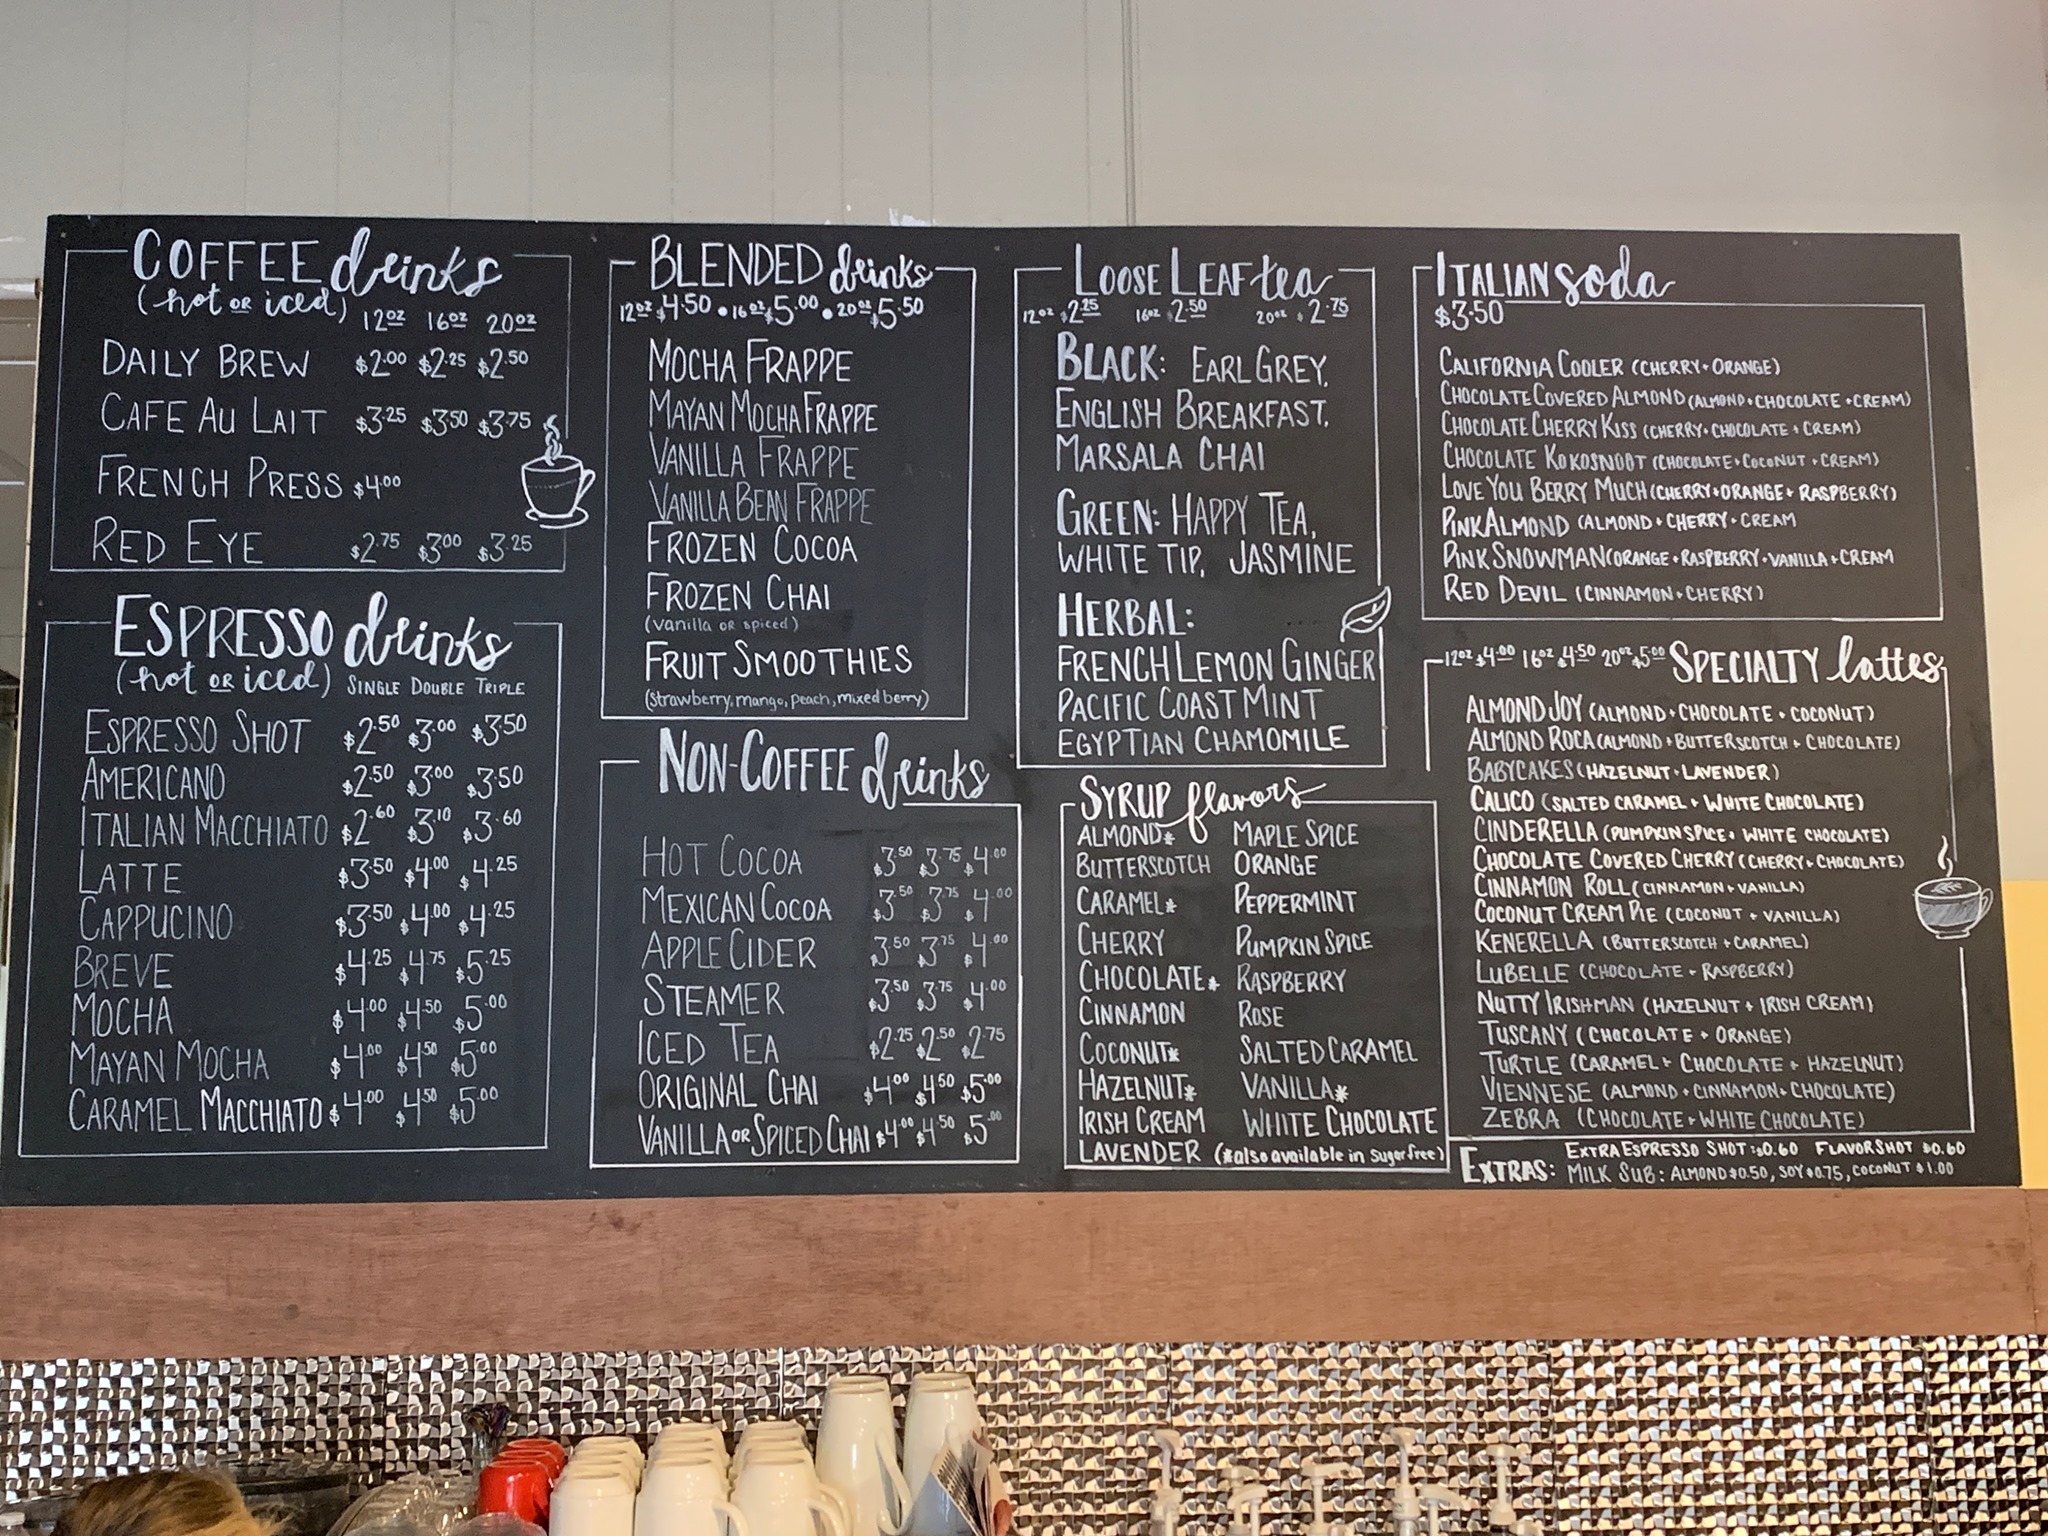 COFFEE drinks
(hot OR iced)
12oz 16oz 20oz
DAILY BREW $2.00 $2.25 $2.50
CAFE AU LAIT $3.25 $3.50 $3.75
FRENCH PRESS $4.00
RED EYE $2.75 $3.00 $3.25
ESPRESSO drinks
(hot OR iced) SINGLE DOUBLE TRIPLE
ESPRESSO SHOT $2.50 $3.00 $3.50
AMERICANO $2.50 $3.00 $3.50
ITALIAN MACCHIATO $2.60 $3.10 $3.60
LATTE $3.50 $4.00 $4.25
CAPPUCINO $3.50 $4.00 $4.25
BREVE $4.25 $4.75 $5.25
MOCHA $4.00 $4.50 $5.00
MAYAN MOCHA $4.00 $4.50 $5.00
CARAMEL MACCHIATO $4.00 $4.50 $5.00
BLENDED drinks
12oz $4.50 • 16oz $5.00 • 20oz $5.50
MOCHA FRAPPE
MAYAN MOCHA FRAPPE
VANILLA FRAPPE
VANILLA BEAN FRAPPE
FROZEN COCOA
FROZEN CHAI
(vanilla OR spiced)
FRUIT SMOOTHIES
(strawberry, mango, peach, mixed berry)
NON-COFFEE drinks
HOT COCOA $3.50 $3.75 $4.00
MEXICAN COCOA $3.50 $3.75 $4.00
APPLE CIDER $3.50 $3.75 $4.00
STEAMER $3.50 $3.75 $4.00
ICED TEA $2.25 $2.50 $2.75
ORIGINAL CHAI $4.00 $4.50 $5.00
VANILLA OR SPICED CHAI $4.00 $4.50 $5.00
LOOSE LEAF tea
12oz $2.25 16oz $2.50 20oz $2.75
BLACK: EARL GREY,
ENGLISH BREAKFAST,
MARSALA CHAI
GREEN: HAPPY TEA,
WHITE TIP, JASMINE
HERBAL:
FRENCH LEMON GINGER
PACIFIC COAST MINT
EGYPTIAN CHAMOMILE
SYRUP flavors
ALMOND* MAPLE SPICE
BUTTERSCOTCH ORANGE
CARAMEL* PEPPERMINT
CHERRY PUMPKIN SPICE
CHOCOLATE* RASPBERRY
CINNAMON ROSE
COCONUT* SALTED CARAMEL
HAZELNUT* VANILLA*
IRISH CREAM WHITE CHOCOLATE
LAVENDER (*also available in sugar free)
ITALIAN soda
$3.50
CALIFORNIA COOLER (CHERRY + ORANGE)
CHOCOLATE COVERED ALMOND (ALMOND + CHOCOLATE + CREAM)
CHOCOLATE CHERRY KISS (CHERRY + CHOCOLATE + CREAM)
CHOCOLATE KOKOSNOOT (CHOCOLATE + COCONUT + CREAM)
LOVE YOU BERRY MUCH (CHERRY + ORANGE + RASPBERRY)
PINK ALMOND (ALMOND + CHERRY + CREAM
PINK SNOWMAN (ORANGE + RASPBERRY + VANILLA + CREAM
RED DEVIL (CINNAMON + CHERRY)
12oz $4.00 16oz $4.50 20oz $5.00 SPECIALTY lattes
ALMOND JOY (ALMOND + CHOCOLATE + COCONUT)
ALMOND ROCA (ALMOND + BUTTERSCOTCH + CHOCOLATE)
BABYCAKES (HAZELNUT + LAVENDER)
CALICO (SALTED CARAMEL + WHITE CHOCOLATE)
CINDERELLA (PUMPKIN SPICE + WHITE CHOCOLATE)
CHOCOLATE COVERED CHERRY (CHERRY + CHOCOLATE)
CINNAMON ROLL (CINNAMON + VANILLA)
COCONUT CREAM PIE (COCONUT + VANILLA)
KENERELLA (BUTTERSCOTCH + CARAMEL)
LUBELLE (CHOCOLATE + RASPBERRY)
NUTTY IRISHMAN (HAZELNUT + IRISH CREAM)
TUSCANY (CHOCOLATE + ORANGE)
TURTLE (CARAMEL + CHOCOLATE + HAZELNUT)
VIENNESE (ALMOND + CINNAMON + CHOCOLATE)
ZEBRA (CHOCOLATE + WHITE CHOCOLATE)
EXTRAS: EXTRA ESPRESSO SHOT: $0.60 FLAVOR SHOT $0.60
MILK SUB: ALMOND $0.50, SOY $0.75, COCONUT $1.00